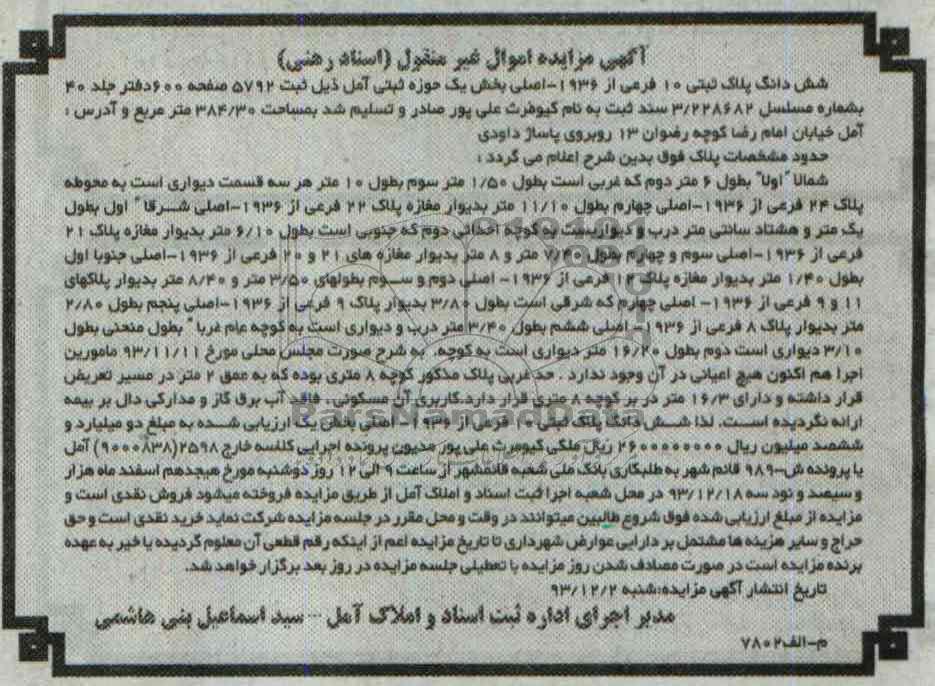 آگهی مزایده اموال غیر منقول (اسناد رهنی)
شش دانگ پلاک ثبتی ۱۰ فرعی از ۱۹۳۶-اصلی بخش یک حوزه ثبتی آمل ذیل ثبت ۵۷۹۲ صفحه ۶۰۰دفتر جلد ۴۰
بشماره مسلسل ۳/۲۲۸۶۸۲ سند ثبت به نام کیومرث علی پور صادر و تسلیم شد بمساحت ۳۸۴/۳۰ متر مربع و آدرس :
آمل خیابان امام رضا کوچه رضوان ۱۳ روبروی پاساژ داودی
حدود مشخصات پلاک فوق بدین شرح اعلام می گردد :
شمالا "اولا" بطول ۶ متر دوم که غربی است بطول ۱/۵۰ متر سوم بطول ۱۰ متر هر سه قسمت دیواری است به محوطه
پلاک ۲۴ فرعی از ۱۹۳۶-اصلی چهارم بطول ۱۱/۱۰ متر بدیوار مغازه پلاک ۲۲ فرعی از ۱۹۳۶-اصلی شرقا " اول بطول
یک متر و هشتاد سانتی متر درب و دیواریست به کوچه احداثی دوم که جنوبی است بطول ۶/۱۰ متر بدیوار مغازه پلاک ۲۱
فرعی از ۱۹۳۶-اصلی سوم و چهارم بطول ۷/۲۰ متر و ۸ متر بدیوار مغازه های ۲۱ و ۲۰ فرعی از ۱۹۳۶-اصلی جنوبا اول
بطول ۱/۴۰ متر بدیوار مغازه پلاک ۱۲ فرعی از ۱۹۳۶- اصلی دوم و سوم بطولهای ۳/۵۰ متر و ۸/۴۰ متر بدیوار پلاکهای
۱۱ و ۹ فرعی از ۱۹۳۶- اصلی چهارم که شرقی است بطول ۳/۸۰ بدیوار پلاک ۹ فرعی از ۱۹۳۶-اصلی پنجم بطول ۲/۸۰
متر بدیوار پلاک ۸ فرعی از ۱۹۳۶- اصلی ششم بطول ۳/۴۰ متر درب و دیواری است به کوچه عام غربا " بطول منحنی بطول
۳/۱۰ دیواری است دوم بطول ۱۶/۲۰ متر دیواری است به کوچه. به شرح صورت مجلس محلی مورخ ۹۳/۱۱/۱۱ مامورین
اجرا هم اکنون هیچ اعیانی در آن وجود ندارد . حد غربی پلاک مذکور کوچه ۸ متری بوده که به عمق ۲ متر در مسیر تعریض
قرار داشته و دارای ۱۶/۳ متر در بر کوچه ۸ متری قرار دارد.کاربری آن مسکونی. فاقد آب برق گاز و مدارکی دال بر بیمه
ارائه نگردیده است. لذا شش دانگ پلاک ثبتی ۱۰ فرعی از ۱۹۳۶- اصلی بخش یک ارزیابی شده به مبلغ دو میلیارد و
ششصد میلیون ریال ۲۶۰۰۰۰۰۰۰۰ ریال ملکی کیومرث علی پور مدیون پرونده اجرایی کلاسه خارج ۲۵۹۸(۹۰۰۰۸۳۸) آمل
با پرونده ش-۹۸۹ قائم شهر به طلبکاری بانک ملی شعبه قائمشهر از ساعت ۹ الی ۱۲ روز دوشنبه مورخ هیجدهم اسفند ماه هزار
و سیصد و نود سه ۹۳/۱۲/۱۸ در محل شعبه اجرا ثبت اسناد و املاک آمل از طریق مزایده فروخته میشود فروش نقدی است و
مزایده از مبلغ ارزیابی شده فوق شروع طالبین میتوانند در وقت و محل مقرر در جلسه مزایده شرکت نماید خرید نقدی است و حق
حراج و سایر هزینه ها مشتمل بر دارایی عوارض شهرداری تا تاریخ مزایده اعم از اینکه رقم قطعی آن معلوم گردیده یا خیر به عهده
برنده مزایده است در صورت مصادف شدن روز مزایده با تعطیلی جلسه مزایده در روز بعد برگزار خواهد شد.
تاریخ انتشار آگهی مزایده:شنبه ۹۳/۱۲/۲
مدیر اجرای اداره ثبت اسناد و املاک آمل ... سید اسماعیل بنی هاشمی
م-الف۷۸۰۲
ParsNamadData